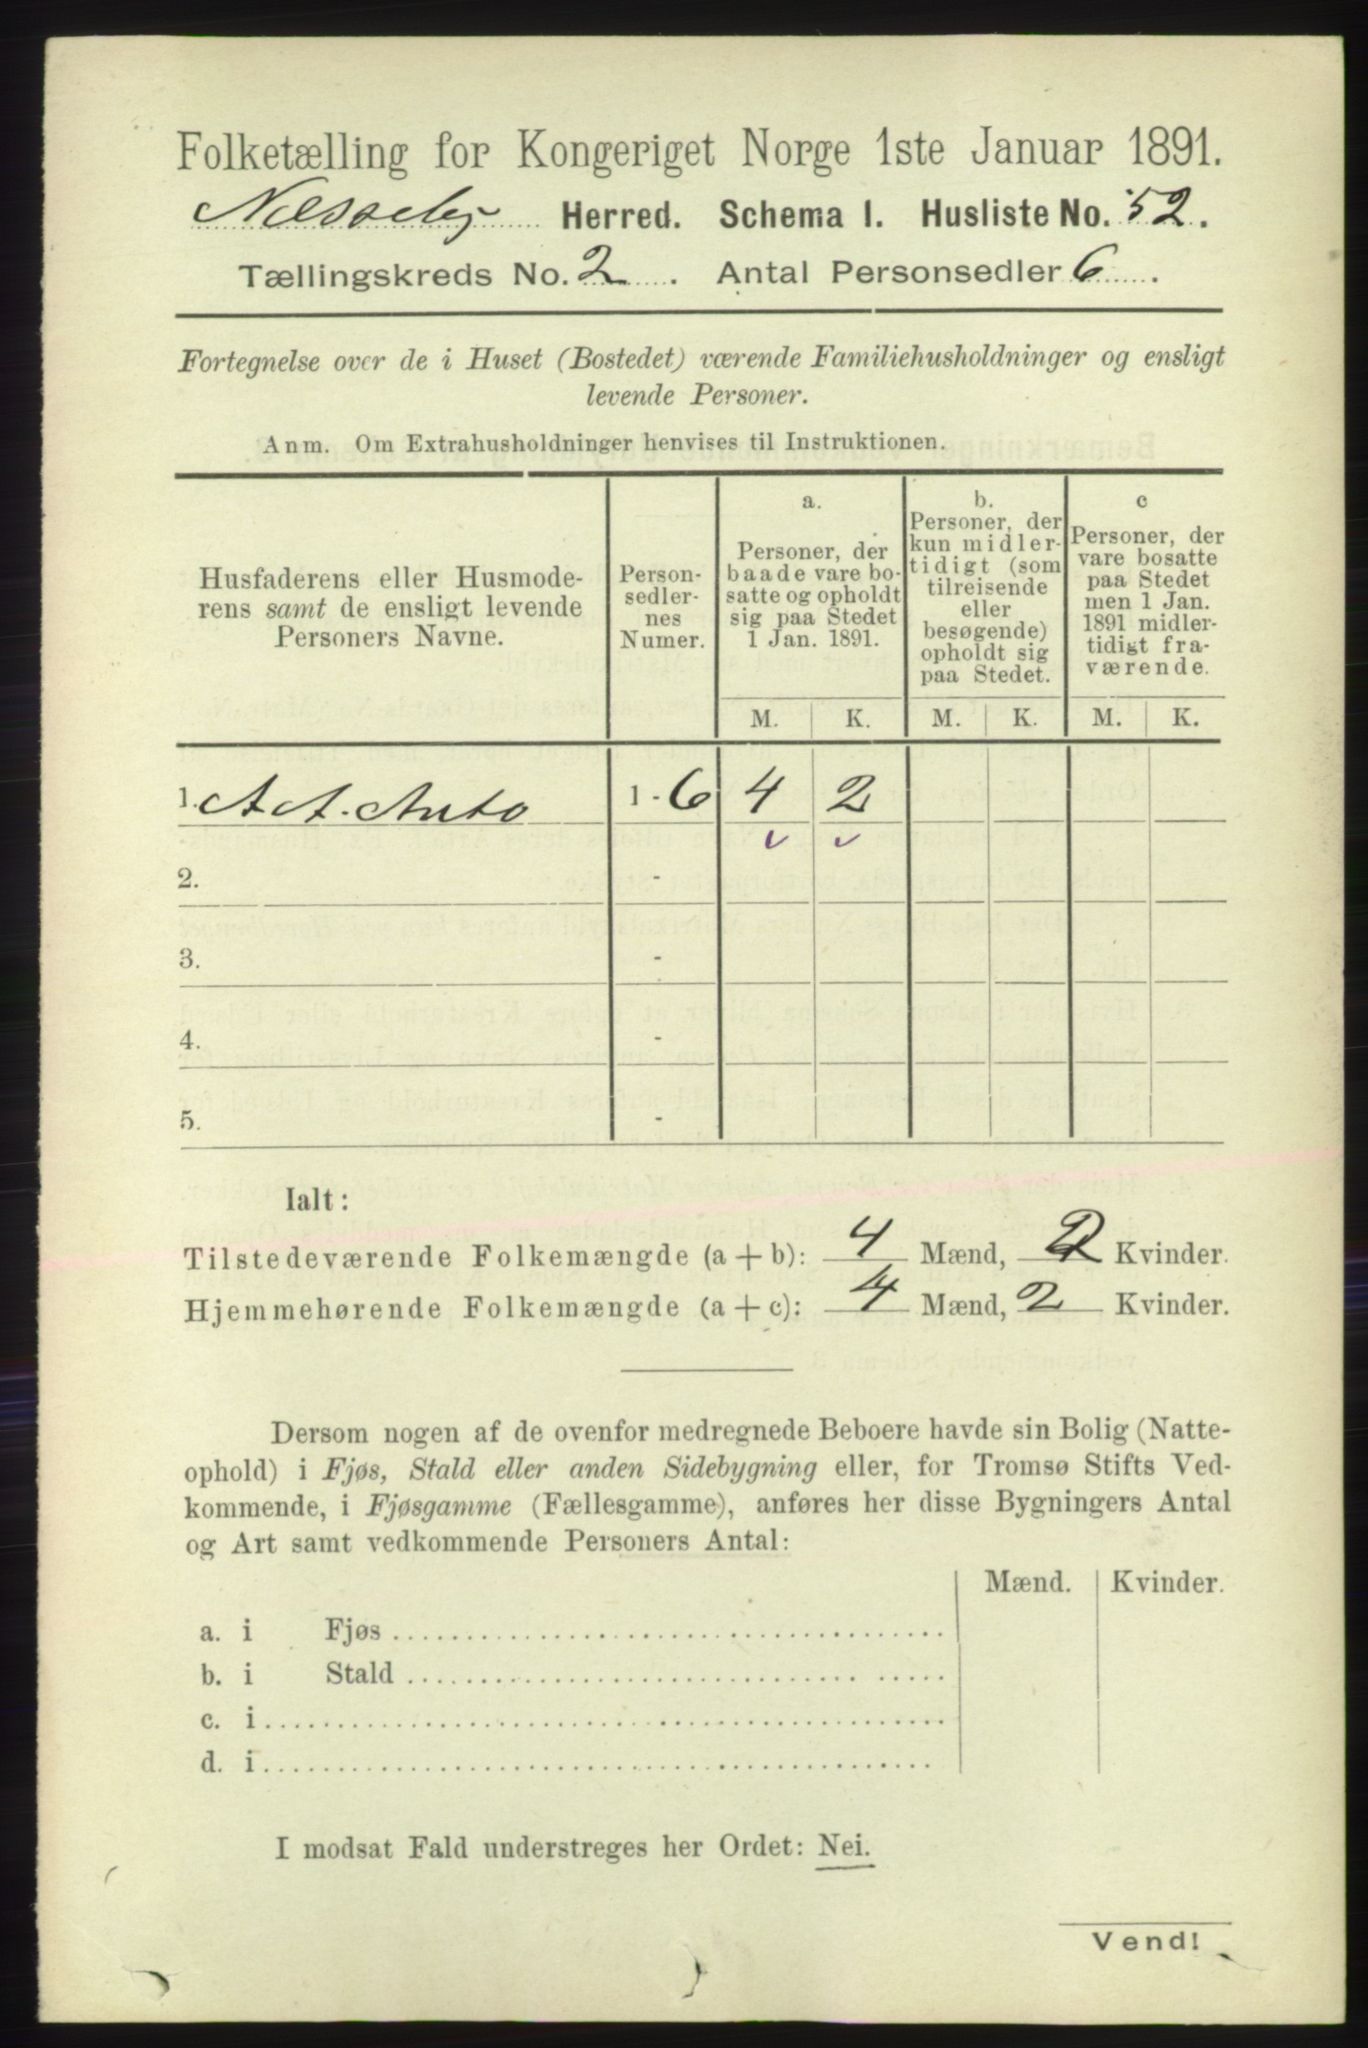 Folketælling for Kongeriget Norge 1ste Januar 1891.
Næsseby Herred. Schema I. Husliste No. 52.
Tællingskreds No. 2. Antal Personsedler 6.
Fortegnelse over de i Huset (Bostedet) værende Familiehusholdninger og ensligt
levende Personer.
Anm. Om Extrahusholdninger henvises til Instruktionen.
Husfaderens eller Husmode-
rens samt de ensligt levende
Personers Navne.
Person-
sedler-
nes
Numer.
a.
Personer, der
baade vare bo-
satte og opholdt
sig paa Stedet
1 Jan. 1891.
b.
Personer, der
kun midler-
tidigt (som
tilreisende
eller
besøgende)
opholdt sig
paa Stedet.
c
Personer, der
vare bosatte
paa Stedet
men 1 Jan.
1891 midler-
tidigt fra-
værende.
M. K. M. K. M. K.
1. A A. Anto 1 - 6 4 2
2. -
3. -
4. -
5. -
Ialt:
Tilstedeværende Folkemængde (a + b): 4 Mænd, 2 Kvinder.
Hjemmehørende Folkemængde (a + c): 4 Mænd, 2 Kvinder.
Dersom nogen af de ovenfor medregnede Beboere havde sin Bolig (Natte-
ophold) i Fjøs, Stald eller anden Sidebygning eller, for Tromsø Stifts Ved-
kommende, i Fjøsgamme (Fællesgamme), anføres her disse Bygningers Antal
og Art samt vedkommende Personers Antal:
Mænd. Kvinder.
a. i Fjøs
b. i Stald
c. i
d. i
I modsat Fald understreges her Ordet: Nei.
Vend!